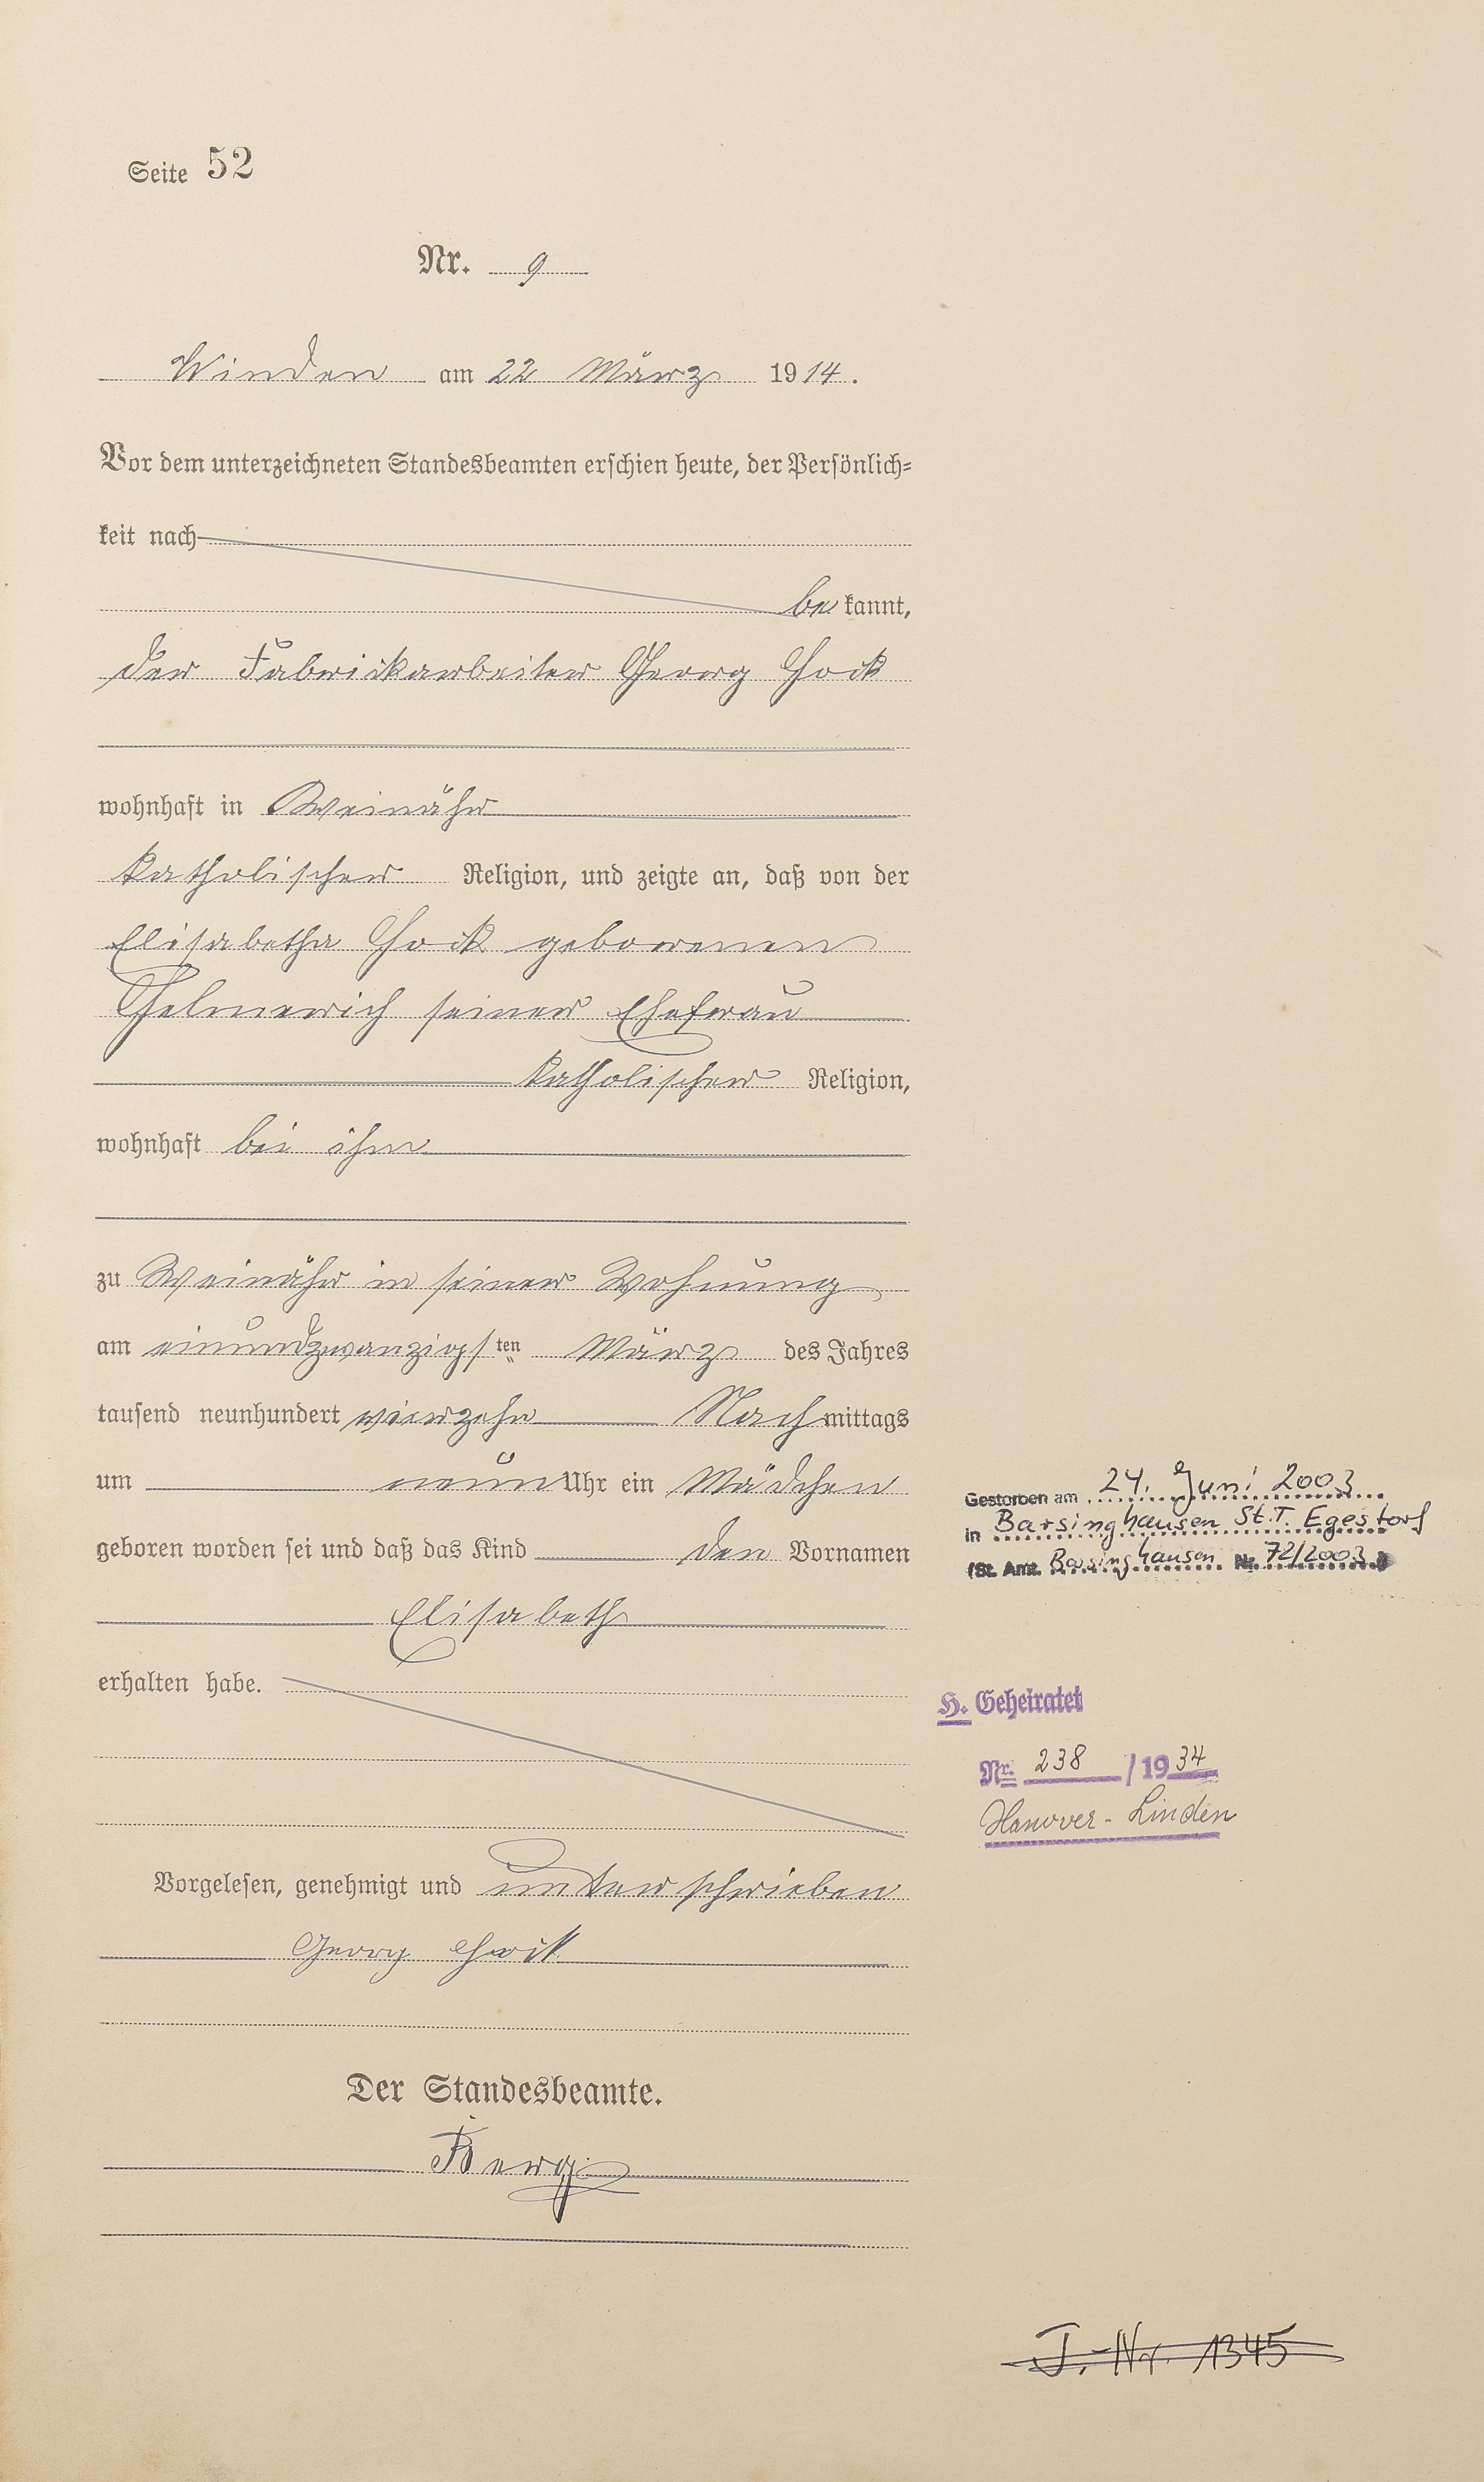 Seite 52
Nr. 9
Winden am 22 März 1914.
Vor dem unterzeichneten Standesbeamten erschien heute, der Persönlich-
keit nach
bekannt,
der Fabrickarbeiter Georg Hock
wohnhaft in Weinähr
katholischer Religion, und zeigte an, daß von der
Elisabetha Hock geborenen
seiner Ehefrau
katholischer Religion,
wohnhaft bei ihm
zu Weinähr in seiner Wohnung
am einundzwanzigsten März des Jahres
tausend neunhundert vierzehn Nachmittags
um neun Uhr ein Mädchen
geboren worden sei und daß das Kind den Vornamen
Elisabeth
erhalten habe.
Vorgelesen, genehmigt und unterschrieben
Georg Hock
Der Standesbeamte.
Berg
Gestorben am 24. Juni 2003
in Barsinghausen St.T. Egestorf
(St. Amt. Barsinghausen Nr. 72/2003)
H. Geheiratet
Nr. 238 / 1934
Hanover-Linden
J.-Nr. 1345